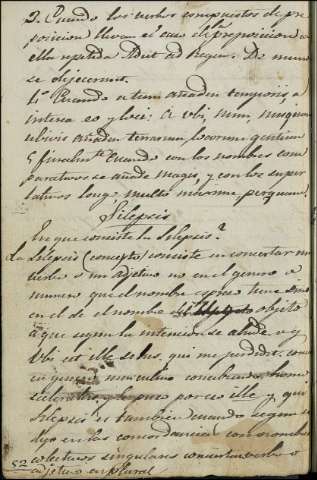 2. Cuando los verbos compuestos de pre
posicion llevan el caso de la preposicion co
ella repetida Adit ad Regem. De mun
se dejecerunt.
4º Cuando a tum añaden temporis a
interea eo y loci: a ubi, num, nusquam
ubivis añaden terrarum, locorum, gentium
5 finalmte Cuando con los nombres com
parativos se añade magis, y con los super
lativos longe multo maxime perquam.
Silepsis
En que consiste la Silepsis?
La Silepsis (concepto) consiste en concertar un
verbo o un adjetivo no en el genero o
numero que el nombre tiene sino
en el de el nombre objeto
a que segun la intencion se alude v.g.
Ubi est ille scelus, qui me perdidit, con
en genero masculino
ille y qui
Silepsis es tambien cuando segun se
dijo en las concordancias con nombres
colectivos singulares conciertan verbo o
52 adjetivo en plural